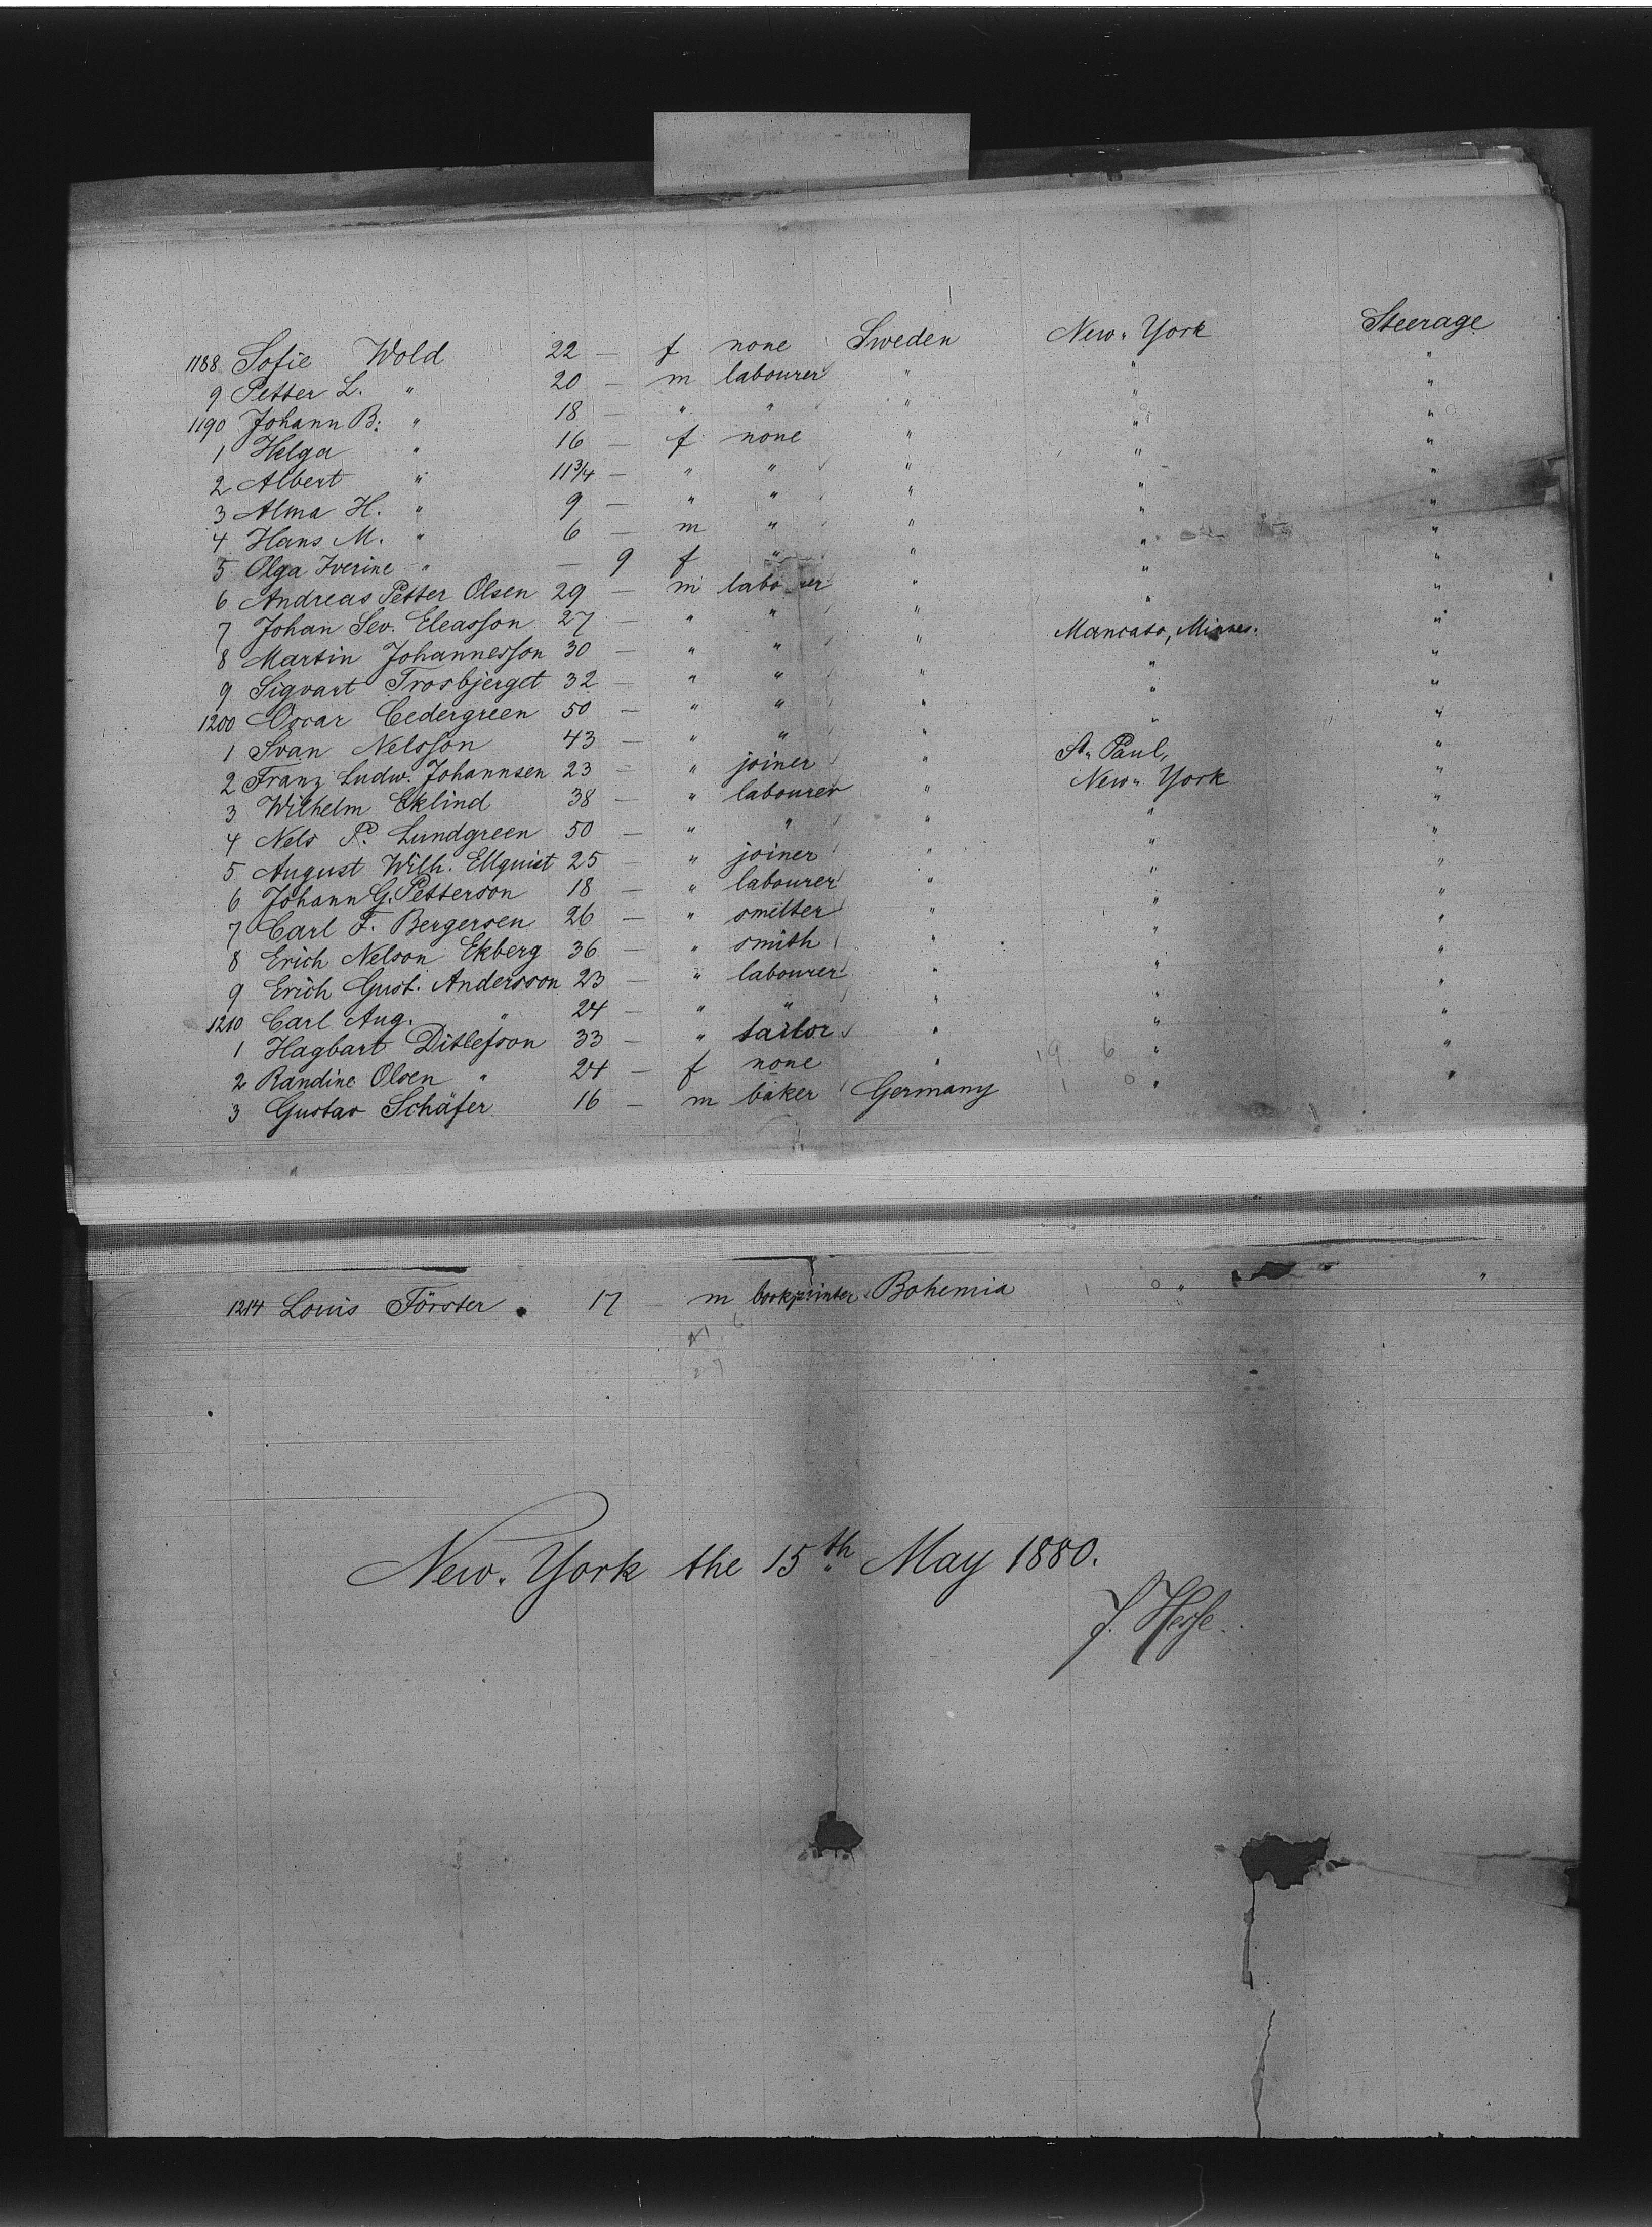 1188 Sofie Wold 22 — f none Sweden New-York Steerage
9 Petter L. " 20 — m labourer " " "
1190 Johann B. " 18 — " " " " "
1 Helga " 16 — f none " " "
2 Albert " 11 3/4 — " " " " "
3 Alma H. " 9 — " " " " "
4 Hans M. " 6 — m " " " "
5 Olga Iverine " — 9 f " " " "
6 Andreas Petter Olsen 29 — m labourer " " "
7 Johan Sev. Eleasson 27 — " " " " "
8 Martin Johannesson 30 — " " " Mancato, Minnes. "
9 Sigvart Trosbjerget 32 — " " " " "
1200 Oscar Cedergreen 50 — " " " " "
1 Svan Nelsson 43 — " " " " "
2 Franz Ludw. Johannsen 23 — " joiner " St. Paul, "
3 Wilhelm Eklind 38 — " labourer " New-York "
4 Nels P. Lundgreen 50 — " " " " "
5 August Wilh. Ellquist 25 — " joiner " " "
6 Johann G. Petterson 18 — " labourer " " "
7 Carl F. Bergersen 26 — " smelter " " "
8 Erich Nelson Ekberg 36 — " smith " " "
9 Erich Gust. Andersson 23 — " labourer " " "
1210 Carl Aug. " 24 — " " " " "
1 Hagbart Ditlefson 33 — " tailor " " "
2 Randine Olsen " 24 — f none " 19 6 " "
3 Gustav Schäfer 16 — m baker Germany 1 0 " "
1214 Louis Förster 17 m bookprinter Bohemia 1 0 " "
21 6
27
New-York the 15th May 1880.
J. Hesse.